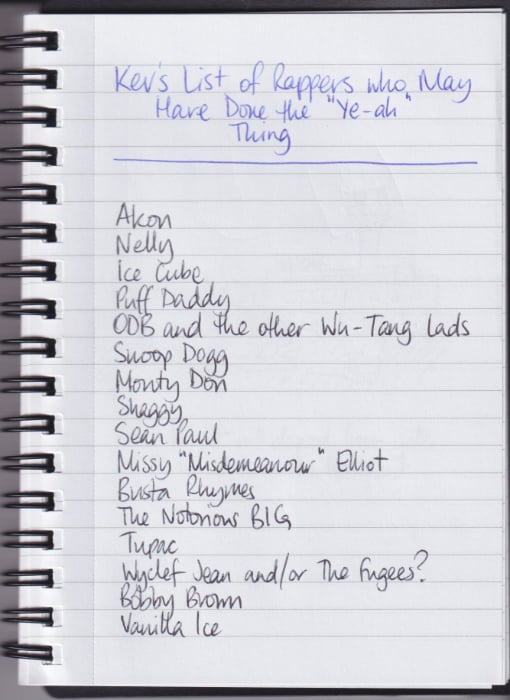 Kev's List of Rappers who May
Have Done the "Ye-ah"
Thing
Akon
Nelly
Ice Cube
Puff Daddy
ODB and the other Wu-Tang Lads
Snoop Dogg
Monty Don
Shaggy
Sean Paul
Missy "Misdemeanour" Elliot
Busta Rhymes
The Notorious BIG
Tupac
Wyclef Jean and/or The Fugees?
Bobby Brown
Vanilla Ice